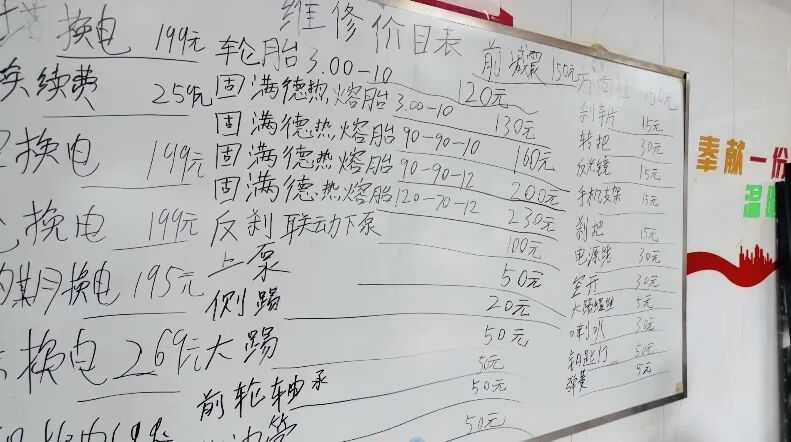 维修价目表
换电 199元
续费 259元
换电 199元
换电 199元
月换电 195元
换电 269元
轮胎3.00-10 120元
固满德热熔胎3.00-10 130元
固满德热熔胎90-90-10 160元
固满德热熔胎90-90-12 200元
固满德热熔胎120-70-12 230元
反刹联动下泵 100元
上泵 50元
侧踢 20元
大踢 50元
前轮轴承 50元
50元
50元
前减震 150元
刹车片 15元
转把 30元
反光镜 15元
手机支架 15元
刹把 15元
电源线 30元
空开 30元
大踢弹簧 5元
喇叭 30元
钥匙门 50元
弹簧 5元
奉献一份
温